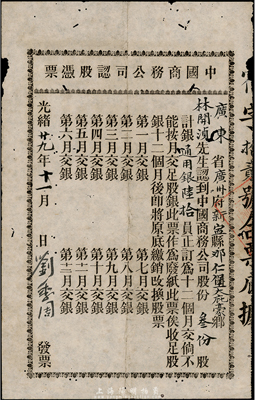 中國商務公司認股憑票
廣東省廣州府新寧縣那仁堡
林開湏先生認到中國商務公司股份叁份股
計銀通用銀陸拾員正訂為十二個月交倘不
能按月交足股銀此票作為廢紙此票俟收足股
銀十二個月後即將原底繳銷改換股票
第一月交銀 第七月交銀
第二月交銀 第八月交銀
第三月交銀 第九月交銀
第四月交銀 第十月交銀
第五月交銀 第十一月交銀
第六月交銀 第十二月交銀
光緒廿九年十一月 日 劉 發票